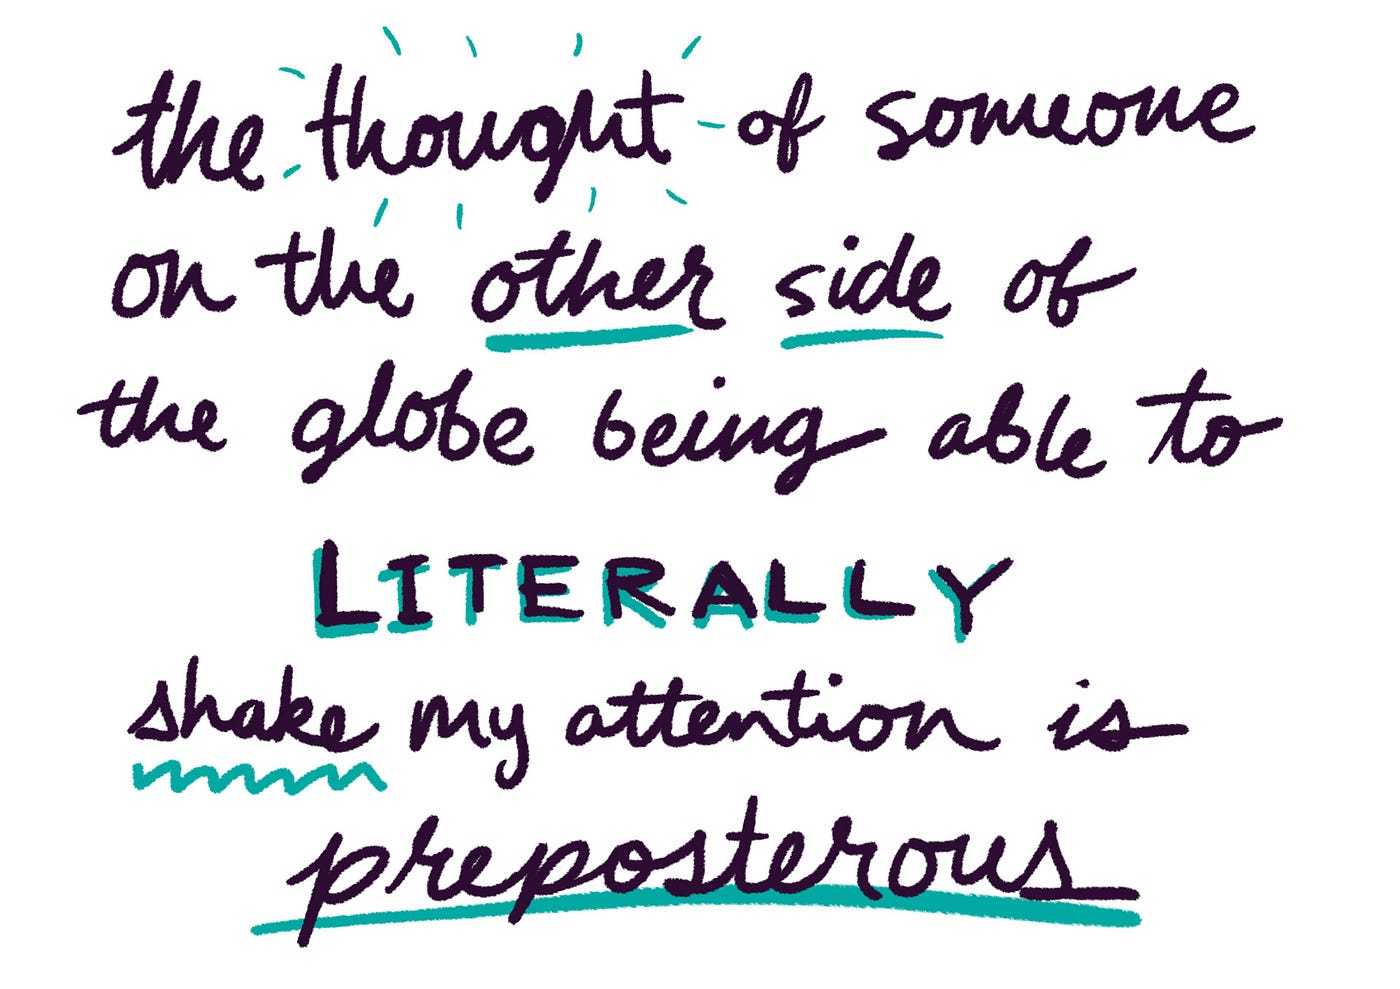 the thought of someone
on the other side of
the globe being able to
LITERALLY
shake my attention is
preposterous